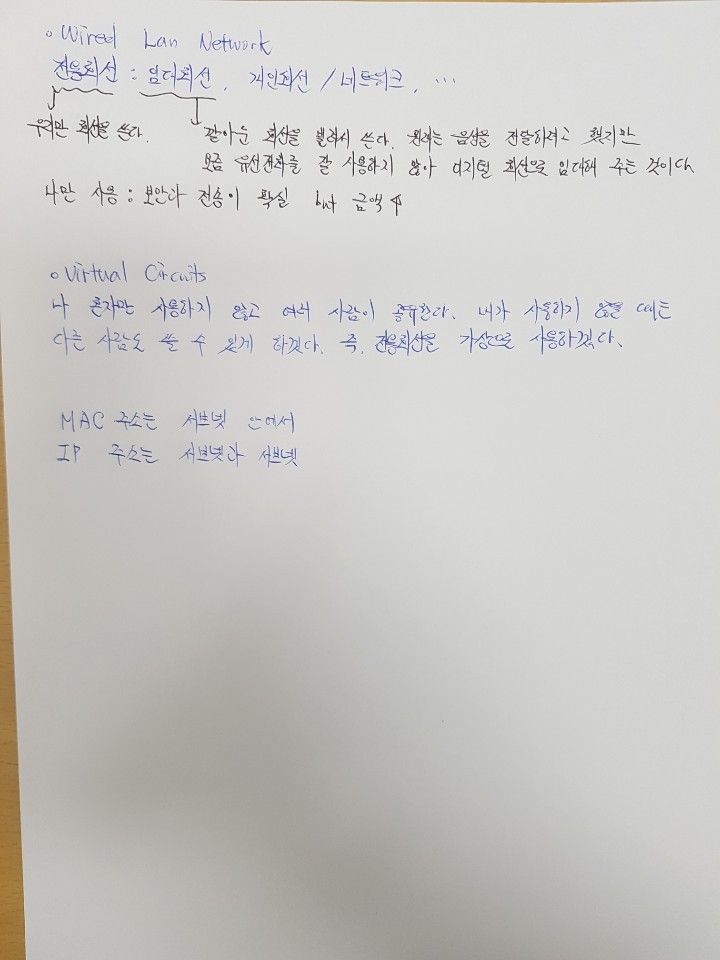 o Wired Lan Network
전용회선 : 임대회선, 개인회선 / 네트워크, ...
우리만 회선을 쓴다. 깔아둔 회선을 빌려서 쓴다. 원래는 음성을 전달하려고 했지만
요즘 유선전화를 잘 사용하지 않아 디지털 회선으로 임대해 주는 것이다.
나만 사용 : 보안과 전송이 확실 but 금액↑
o Virtual Circuits
나 혼자만 사용하지 않고 여러 사람이 공유한다. 내가 사용하지 않을 때는
다른 사람도 쓸 수 있게 하겠다. 즉, 전용회선을 가상으로 사용하겠다.
MAC 주소는 서브넷 안에서
IP 주소는 서브넷과 서브넷